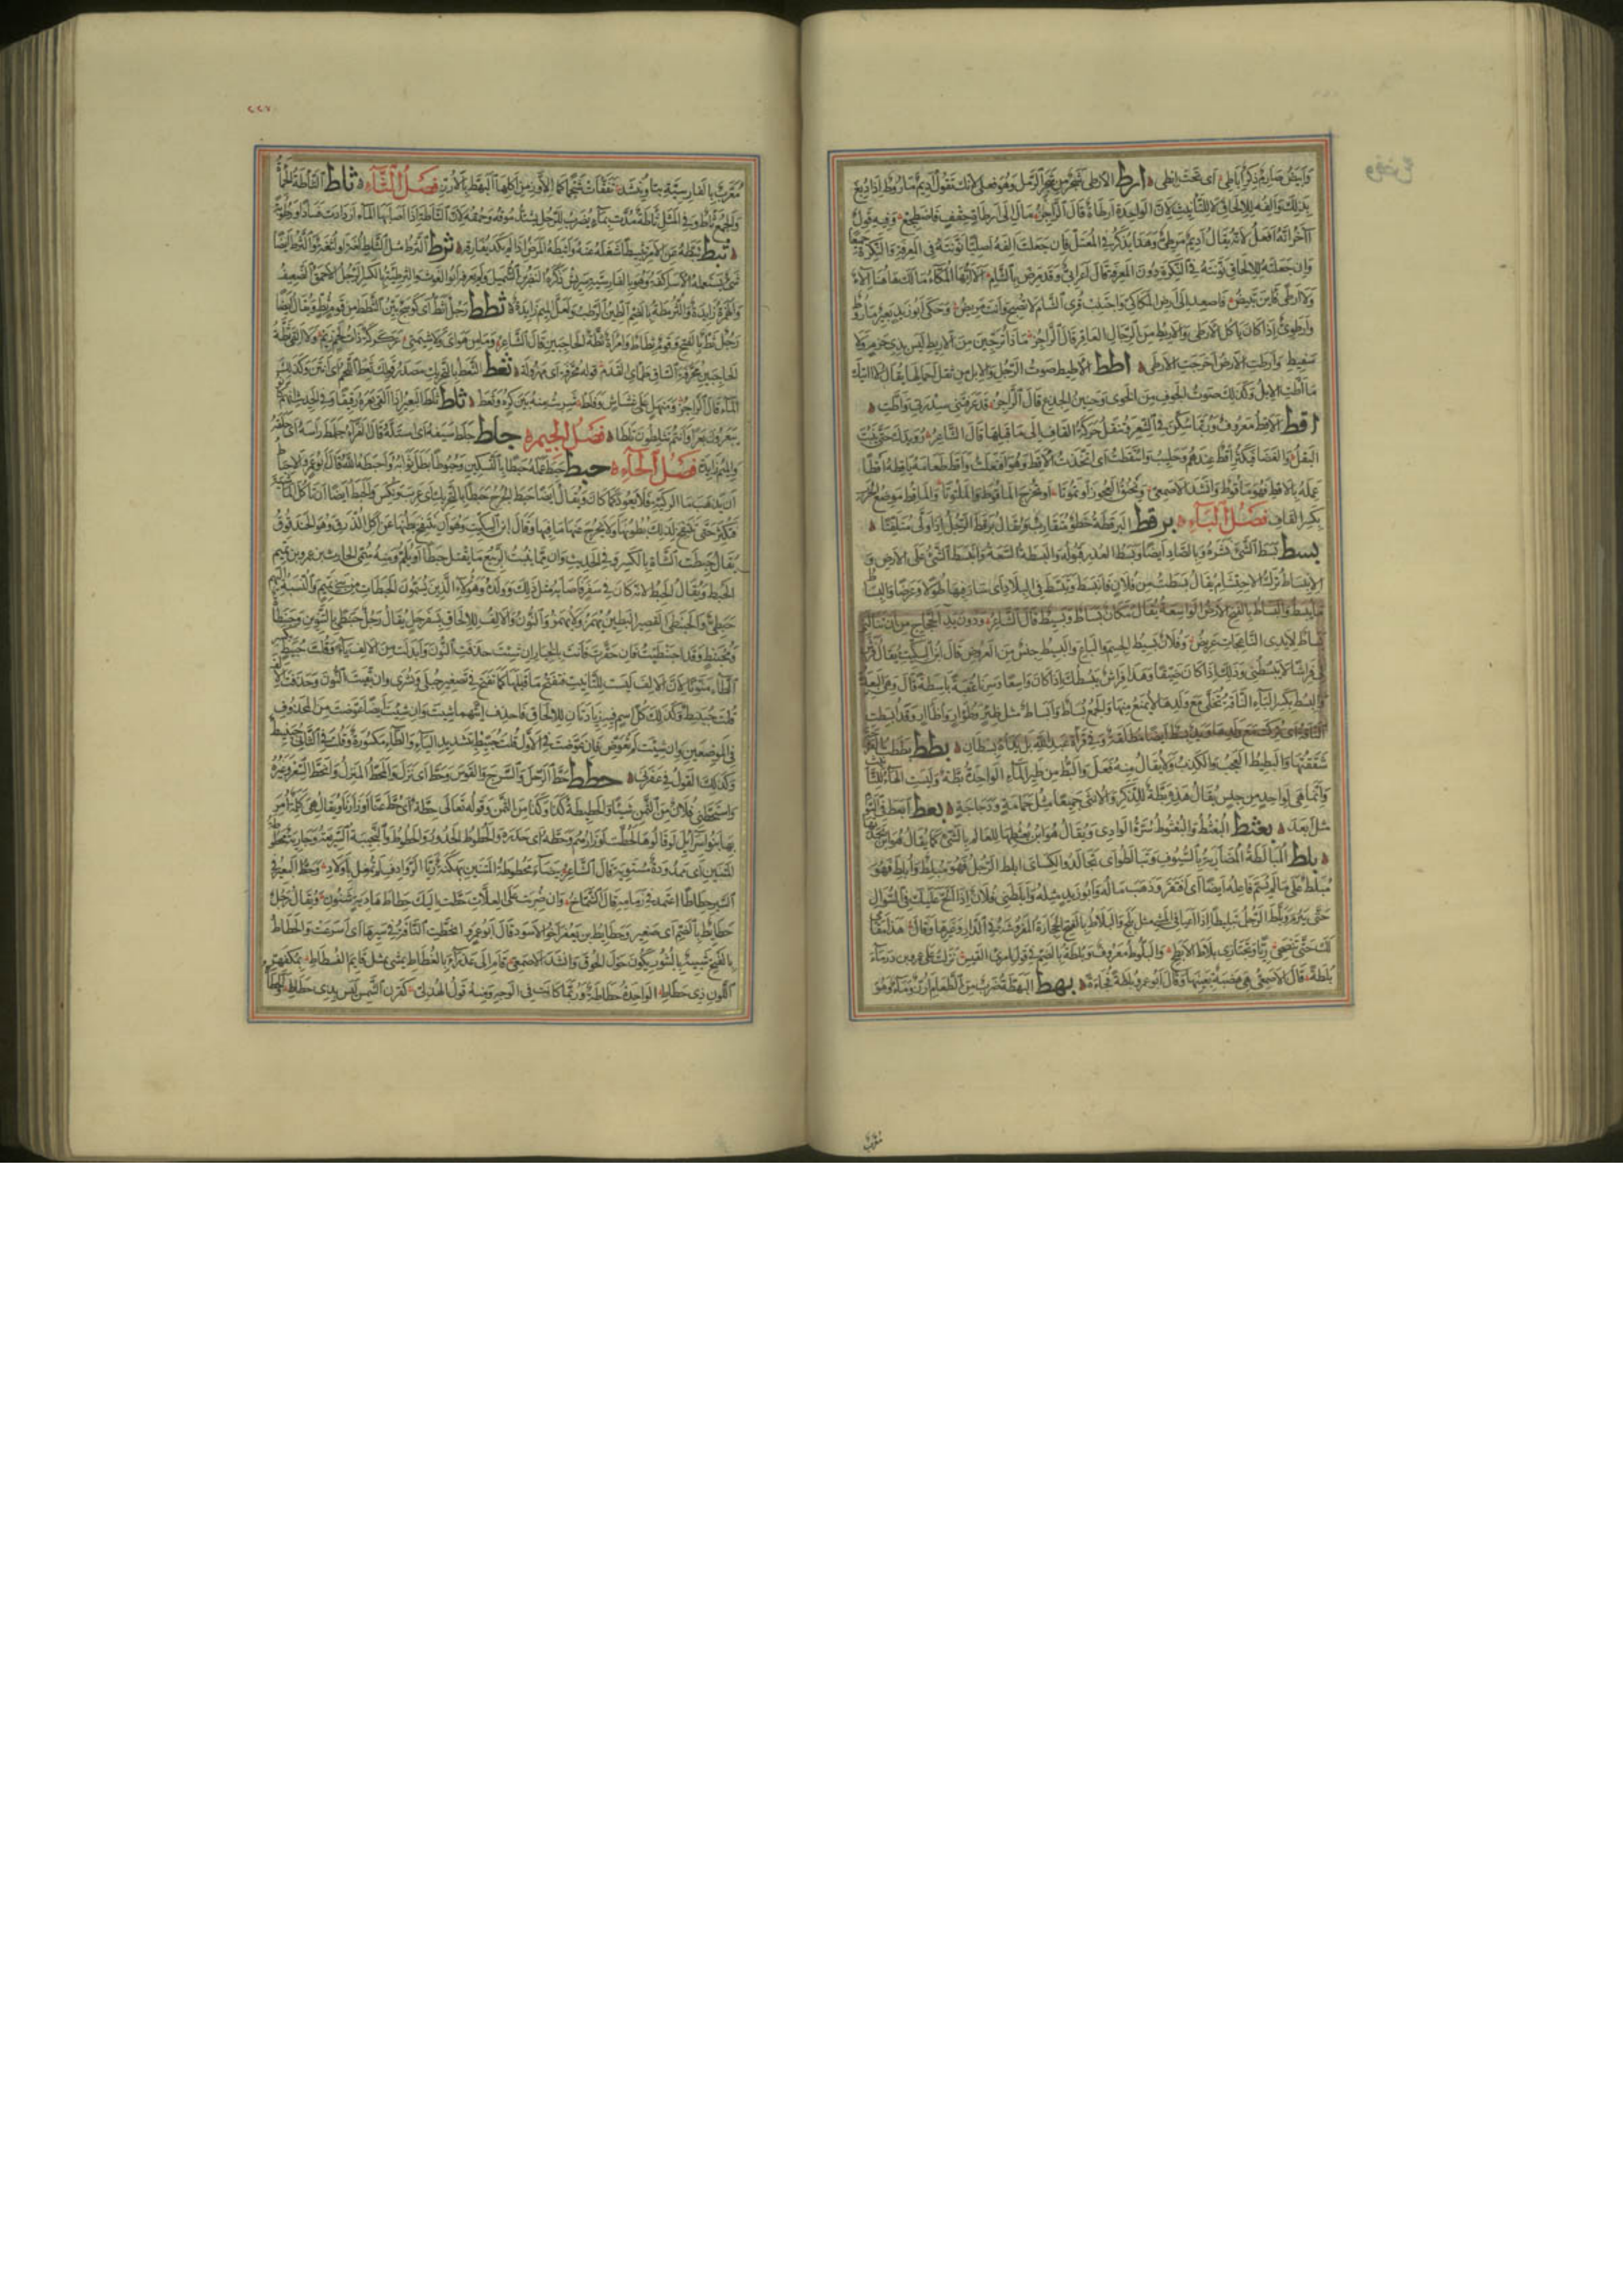 وابيض صارم ذكر اباطي اي تحت ابطي ارط الارطى شجر من شجر الرمل وهو فعلى لانك تقول اديم ماروط اذا دبغ
بذلك والفه للالحاق لا للتانيث لان الواحدة ارطاة قال الراجز مال الى ارطاة حقف فاضطجع وفيه قول
آخر انه افعل لانه يقال اديم مرطي وهذا يذكر في المعتل فان جعلت الفه اصليا نونته في المعرفة والنكرة جميعا
وان جعلته للالحاق نونته في النكرة دون المعرفة قال اعرابي وقد مرض بالشام الا ايها المكاء مالك هاهنا الاء
ولا ارطى فاين تبيض فاصعد الى ارض المكاكي واجتنب قرى الشام لا تصبح وانت مريض وحكى ابو زيد بعير ماروط
وارطوي اذا كان ياكل الارطى والاريط من الرجال العاقر قال الراجز ماذا ترجين من الاريط ليس بذي حزم ولا
سفيط وارطت الارض اخرجت الارطى اطط الاطيط صوت الرحل والابل من ثقل احمالها يقال لا اتيك
ما اطت الابل وكذلك صوت الجوف من الخوى وحنين الجذع قال الراجز قد عرفتني سدرتي واطت
اقط الاقط معروف وربما سكن في الشعر فتنقل حركة القاف الى ما قبلها قال الشاعر رويدك حتى ينبت
البقل والغضا فيكثر اقط عندهم وحليب وائتقطت اي اتخذت الاقط وهو افتعلت واقط طعامه ياقطه اقطا
عمله بالاقط فهو ماقوط وانشد الاصمعي ويخنق العجوز او تموتا او تخرج الماقوط والملتوتا والماقط موضع الحرب
بكسر القاف فصل الباء برقط البرقطة خطو متقارب ويقال برقط الرجل اذا ولى متلفتا
بسط بسط الشيء نشره وبالصاد ايضا وبسط العذر قبوله والبسطة السعة وانبسط الشيء على الارض و
الانبساط ترك الاحتشام يقال بسطت من فلان فانبسط وتبسط في البلاد اي سار فيها طولا وعرضا والبساط
ما يبسط والبساط بالفتح الارض الواسعة يقال مكان بساط وبسيط قال الشاعر ودون يد الحجاج من ان تنالني
بساط لايدي الناعجات عريض وفلان بسيط الجسم والباع والبسيط جنس من العروض قال ابن السكيت يقال فرش
لي فراشا لا يبسطني وذلك اذا كان ضيقا وهذا فراش يبسطك اذا كان واسعا وسرنا عقبة باسطة قال وهي البعيدة
والبسط بكسر الباء الناقة تخلى مع ولدها لا يمنع منها والجمع بساط وابساط مثل ظئر وظؤار واظآر وقد ابسطت
الناقة اي تركت مع ولدها ويد بسط ايضا مطلقة وفي قراة عبد الله بل يداه بسطان بطط بططت القرحة
شققتها والبطيط العجب والكذب ولا يقال منه فعل والبط من طير الماء الواحدة بطة وليست الهاء للتانيث
وانما هي لواحد من جنس يقال هذه بطة للذكر والانثى جميعا مثل حمامة ودجاجة بعط ابعط في السوم
مثل ابعد بعثط البعثط والبعثوط سرة الوادي ويقال هو ابن بعثطها للعالم بالشيء كما يقال هو ابن بجدتها
بلط المبالطة المضاربة بالسيوف وتبالطوا اي تجالدوا الكسائي ابلط الرجل فهو مبلط وابلط فهو
مبلط على ما لم يسم فاعله ايضا اي افتقر وذهب ماله وابو زيد مثله وابلطني فلان اذا الح عليك في السؤال
حتى يبرم وبلط الرجل تبليطا اذا اعيا في المشي مثل بلح والبلاط بالفتح الحجارة المفروشة في الدار وغيرها وقال هذا مقامي
لك حتى تنضحي ريا وتجتازي بلاط الابطح والبلوط معروف وبلطة بالضم في قول امرئ القيس نزلت على عمرو بن درماء
بلطة قال الاصمعي هي هضبة بعينها وقال ابو عمرو بلطة فجاءة بهط البهط ضرب من الطعام ارز وماء وهو
معرب
٢٢٧
معرب بالفارسية بتا وينشد تفقات شحما كما الاوز من اكلها البهط بالارز فصل الثاء ثاط الثاطة الحماة
والجمع ثاط وفي المثل ثاطة مدت بماء يضرب للرجل يشتد موقه وحمقه لان الثاطة اذا اصابها الماء ازدادت فسادا ورطوبة
ثبط ثبطه عن الامر تثبيطا شغله عنه واثبطه المرض اذا لم يكد يفارقه ثرط الثرط مثل الثلط لغة او لثغة والثرط ايضا
شيء يستعمله الاساكفة وهو بالفارسية سريش ذكره النضر بن شميل ولم يعرفه ابو الغوث والثرطئة بالكسر الرجل الاحمق الضعيف
والهمزة زايدة والثرمطة بالضم الطين الرطب ولعل الميم زايدة ثطط رجل اثط اي كوسج بين الثطط من قوم ثط ويقال ايضا
رجل ثط بالفتح وقوم ثطاط وامراة ثطة الحاجبين قال الشاعر وما من هواي ولا شيمتي عركركة ذات لحم زيم ولا القى ثطة
الحاجبين محرفة الساق ظمأى القدم قوله محرفة اي مهزولة ثعط الثعط بالتحريك مصدر قولك ثعط اللحم اي انتن وكذلك
الماء قال الراجز ومنهل على غشاش وفلط شربت منه بين كره وثعط ثلط ثلط البعير اذا القى بعره رقيقا وفي الحديث انهم كانوا
يبعرون بعرا وانتم تثلطون ثلطا فصل الجيم جلط جلط سيفه اي استله قال الفراء جلمط راسه اي حلقه
والميم زايدة فصل الحاء حبط حبط عمله حبطا بالتسكين وحبوطا بطل ثوابه واحبطه الله قال ابو عمرو الاحباط
ان يذهب ماء الركية فلا يعود كما كان ويقال ايضا حبط الجرح حبطا بالتحريك اي عرب ونكس والحبط ايضا ان تاكل الماشية
فتكثر حتى تنتفخ لذلك بطونها ولا يخرج عنها ما فيها وقال ابن السكيت وهو ان ينتفخ بطنها عن اكل الذرق وهو الحندقوق
يقال حبطت الشاة بالكسر وفي الحديث وان مما ينبت الربيع ما يقتل حبطا او يلم ومنه سمي الحارث بن عمرو بن تميم
الحبط ويقال الحبط لانه كان في سفر فاصابه مثل ذلك وولده هؤلاء الذين يسمون الحبطات من بني تميم والنسبة اليهم
حبطي والحبنطى القصير البطين يهمز ولا يهمز والنون والالف للالحاق بسفرجل يقال رجل حبنطى بالتنوين وحبنطاة
ومحبنط وقد احبنطيت فان حقرت فانت بالخيار ان شئت حذفت النون وابدلت من الالف ياء وقلت حبيط بكسر
الطاء منونا لان الالف ليست للتانيث فتفتح ما قبلها كما تفتح في تصغير حبلى وبشرى وان بقيت النون وحذفت الالف
قلت حبينط وكذلك كل اسم فيه زيادتان للالحاق فاحذف ايتهما شئت وان شئت ايضا عوضت من المحذوف
في الموضعين وان شئت لم تعوض فان عوضت في الاول قلت حبيط بتشديد الياء والطاء مكسورة وقلت في الثاني حبينيط
وكذلك القول في عفرنى حطط حط الرحل والسرج والقوس وحط اي نزل والمحط المنزل وانحط السعر وغيره
واستحطني فلان من الثمن شيئا والحطيطة كذا وكذا من الثمن وقوله تعالى حطة اي حط عنا اوزارنا ويقال هي كلمة امر
بها بنو اسرائيل لو قالوها لحطت اوزارهم وحطه اي حدره والحطوط الحدور والحطوط النجيبة السريعة وجارية محطوطة
المتنين اي ممدودة مستوية قال الشاعر بيضاء محطوطة المتنين بهكنة ريا الروادف لم تمغل باولاد وحط البعير في
السير حطاطا اعتمد في زمامه قال الشماخ وان ضربت على العلات حطت اليك حطاط هادية شنون ويقال رجل
حطائط بالضم اي صغير وحطائط بن يعفر اخو الاسود قال ابو عمرو انحطت الناقة في سيرها اي اسرعت والحطاط
بالفتح شبيه بالبثور يكون حول الحوق وانشد الاصمعي قام الى عذراء بالغطاط يمشي بمثل قائم الفسطاط بمكفهر
اللون ذي حطاط الواحدة حطاطة وربما كانت في الوجه ومنه قول الهذلي كقرن الشمس ليس بذي حطاط